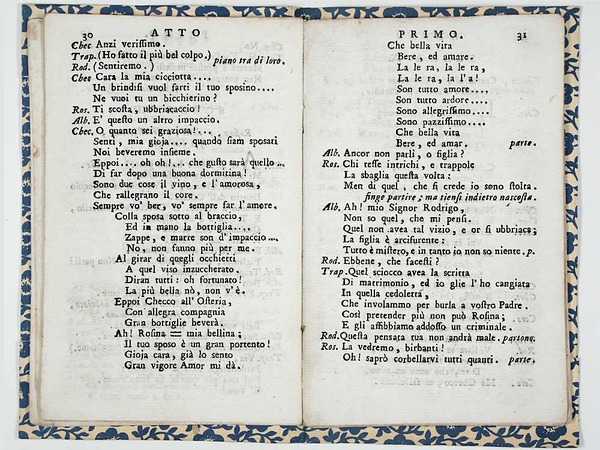 30 ATTO
Chec. Anzi verissimo.
Trap. (Ho fatto il più bel colpo.)
Rod. (Sentiremo.) piano tra di loro.
Chec Cara la mia cicciotta....
Un brindisi vuol farti il tuo sposino....
Ne vuoi tu un bicchierino?
Ros. Ti scosta, ubbriacaccio!
Alb. E' questo un altro impaccio.
Chec. O quanto sei graziosa!...
Senti, mia gioja.... quando siam sposati
Noi beveremo insieme.
Eppoi.... oh oh!... che gusto sarà quello ...
Di far dopo una buona dormitina!
Sono due cose il vino, e l'amorosa,
Che rallegrano il core.
Sempre vo' ber, vo' sempre far l'amore.
Colla sposa sotto al braccio,
Ed in mano la bottiglia....
Zappe, e marre son d'impaccio....
No, non fanno più per me.
Al girar di quegli occhietti
A quel viso inzuccherato.
Diran tutti: oh fortunato!
La più bella nò, non v'è.
Eppoi Checco all'Osteria,
Con allegra compagnia
Gran bottiglie beverà.
Ah! Rosina = mia bellina;
Il tuo sposo è un gran portento!
Gioja cara, già lo sento
Gran vigore Amor mi dà.
PRIMO. 31
Che bella vita
Bere, ed amare.
La le ra, la le ra,
La le ra, la l'a!
Son tutto amore....
Son tutto ardore....
Sono allegrissimo....
Sono pazzissimo....
Che bella vita
Bere, ed amar. parte.
Alb. Ancor non parli, o figlia?
Ros. Chi tesse intrichi, e trappole
La sbaglia questa volta:
Men di quel, che si crede io sono stolta.
finge partire; ma tiensi indietro nascosta.
Alb. Ah! mio Signor Rodrigo,
Non so quel, che mi pensi.
Quel non avea tal vizio, e or si ubbriaca;
La figlia è arcifurente:
Tutto è mistero, e in tanto io non so niente. p.
Rod. Ebbene, che facesti?
Trap. Quel sciocco avea la scritta
Di matrimonio, ed io glie l'ho cangiata
In quella cedoletta,
Che involammo per burla a vostro Padre.
Così pretender più non può Rosina;
E gli affibbiamo addosso un criminale.
Rod. Questa pensata tua non andrà male. partono.
Ros. La vedremo, birbanti!
Oh! saprò corbellarvi tutti quanti. parte.